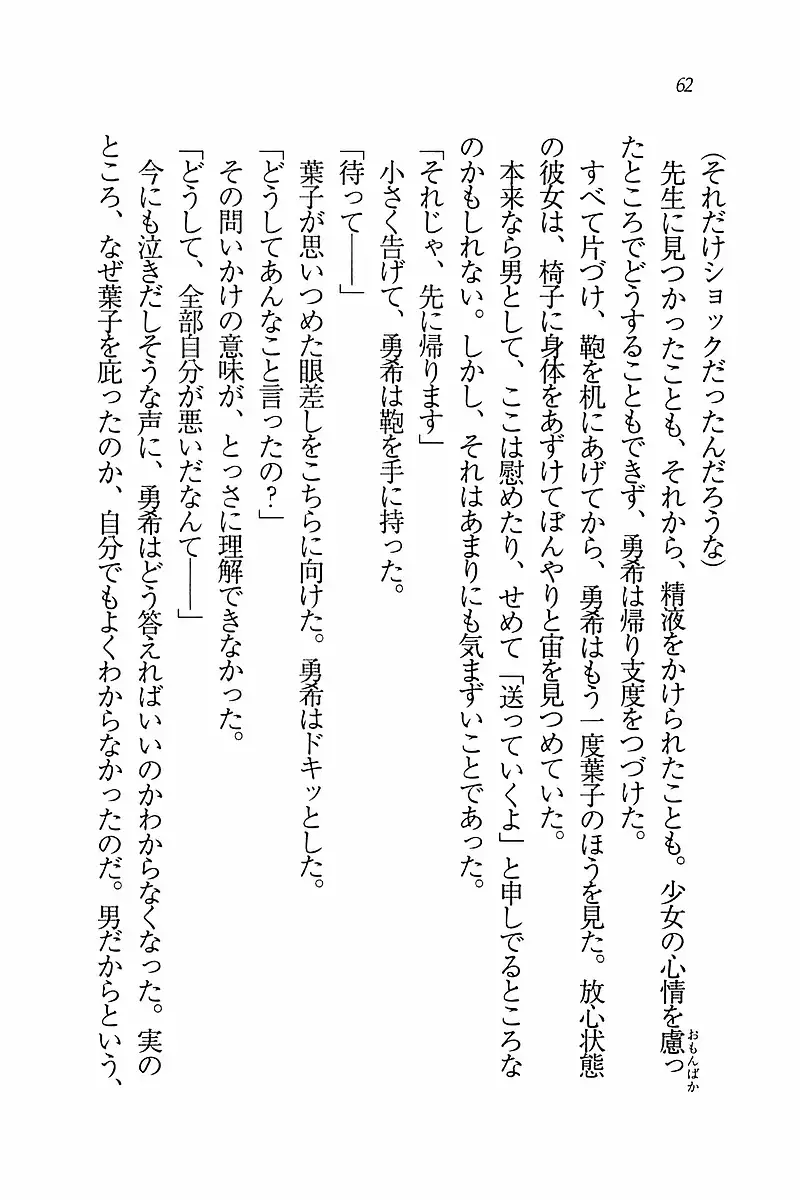 62
(それだけショックだったんだろうな)
先生に見つかったことも、それから、精液をかけられたことも。少女の心情を慮っ
おもんばか
たところでどうすることもできず、勇希は帰り支度をつづけた。
すべて片づけ、鞄を机にあげてから、勇希はもう一度葉子のほうを見た。放心状態
の彼女は、椅子に身体をあずけてぼんやりと宙を見つめていた。
本来なら男として、ここは慰めたり、せめて「送っていくよ」と申しでるところな
のかもしれない。しかし、それはあまりにも気まずいことであった。
「それじゃ、先に帰ります」
小さく告げて、勇希は鞄を手に持った。
「待って――」
葉子が思いつめた眼差しをこちらに向けた。勇希はドキッとした。
「どうしてあんなこと言ったの?」
その問いかけの意味が、とっさに理解できなかった。
「どうして、全部自分が悪いだなんて――」
今にも泣きだしそうな声に、勇希はどう答えればいいのかわからなくなった。実の
ところ、なぜ葉子を庇ったのか、自分でもよくわからなかったのだ。男だからという、